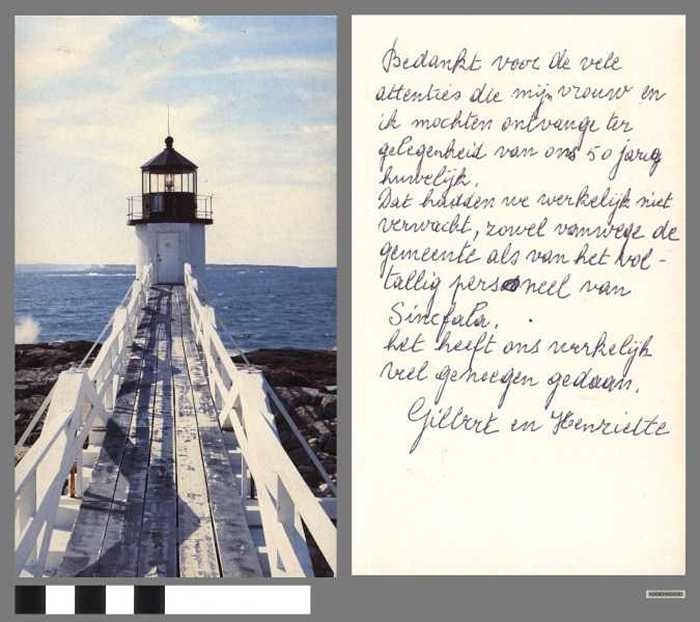 Bedankt voor de vele
attenties die mijn vrouw en
ik mochten ontvange ter
gelegenheid van ons 50 jarig
huwelijk.
Dat hadden we werkelijk niet
verwacht, zowel vanwege de
gemeente als van het vol-
tallig personeel van
Sincfala.
het heeft ons werkelijk
veel genoegen gedaan.
Gilbert en Henriette